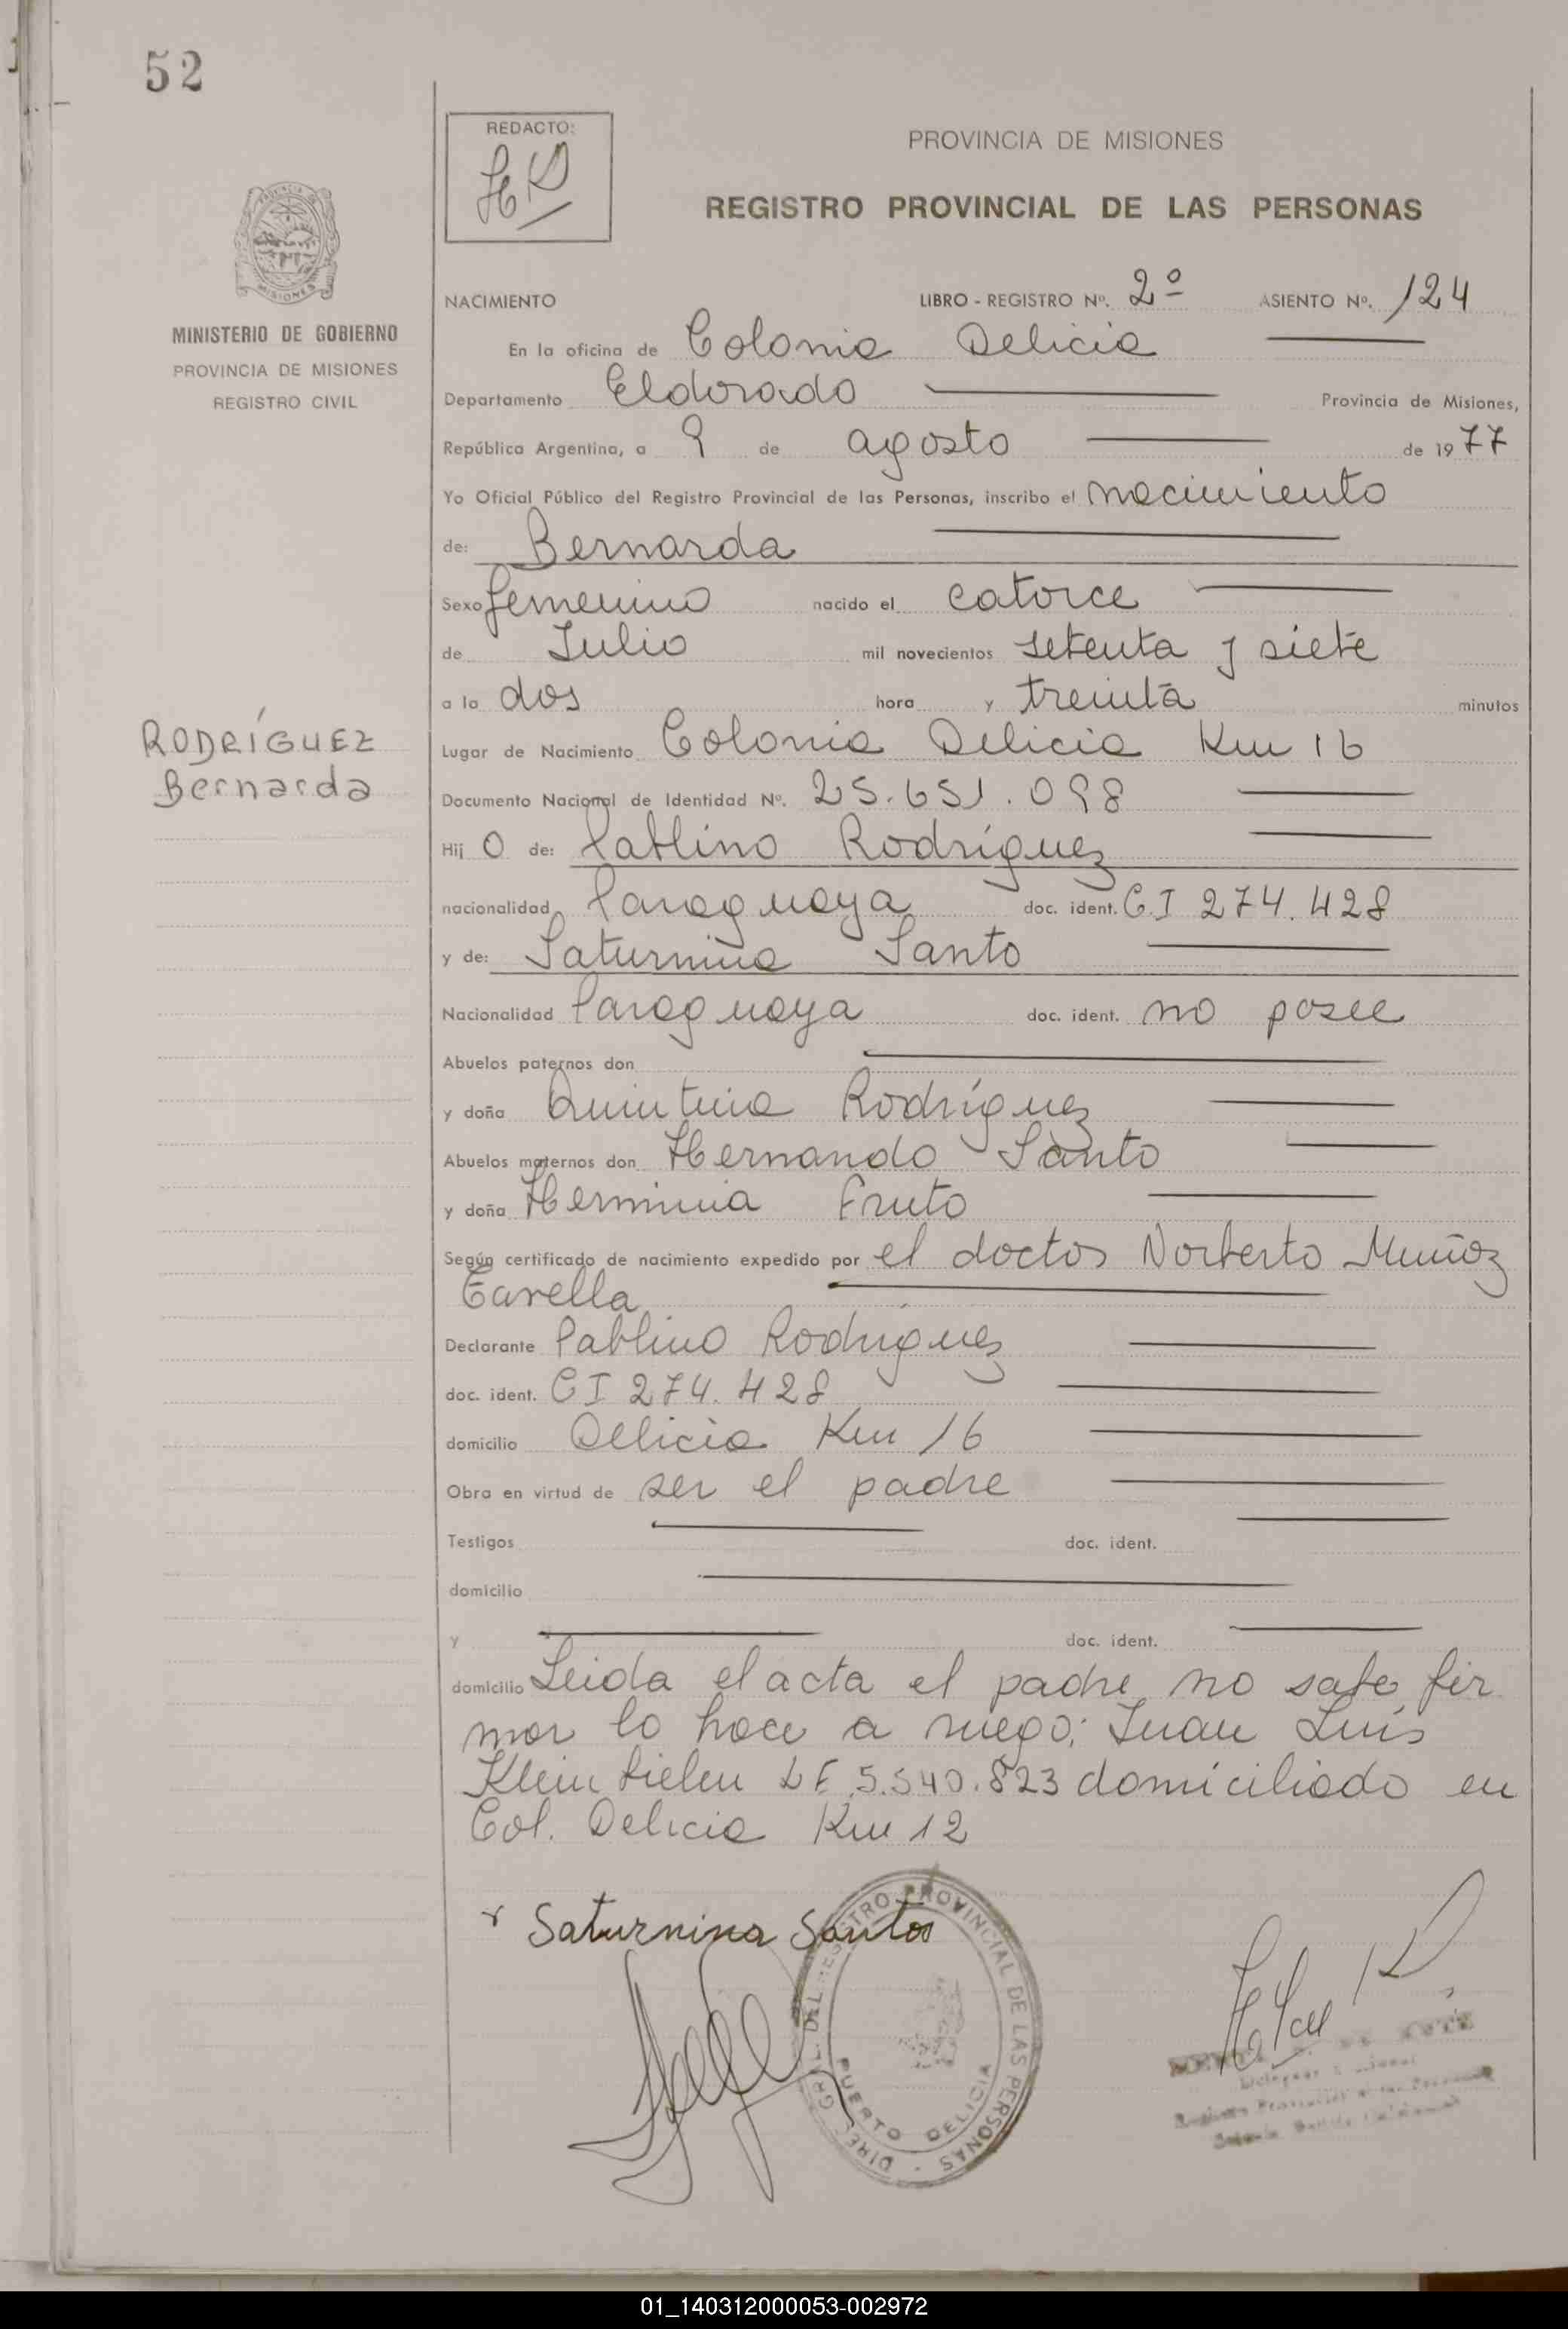 52
REDACTO:
HD
PROVINCIA DE MISIONES
REGISTRO PROVINCIAL DE LAS PERSONAS
MISIONES
MINISTERIO DE GOBIERNO
PROVINCIA DE MISIONES
REGISTRO CIVIL
NACIMIENTO LIBRO - REGISTRO Nº. 2º ASIENTO Nº. 124
En la oficina de Colonia Delicia
Departamento Eldorado Provincia de Misiones,
República Argentina, a 9 de agosto de 1977
Yo Oficial Público del Registro Provincial de las Personas, inscribo el nacimiento
de: Bernarda
Sexo femenino nacido el catorce
de Julio mil novecientos setenta y siete
a la dos hora y treinta minutos
RODRÍGUEZ
Bernarda
Lugar de Nacimiento Colonia Delicia Km 16
Documento Nacional de Identidad Nº. 25.651.098
Hij o de: Pablino Rodríguez
nacionalidad Paraguaya doc. ident. C.I 274.428
y de: Saturnina Santo
Nacionalidad Paraguaya doc. ident. no posee
Abuelos paternos don
y doña Quintina Rodríguez
Abuelos maternos don Hernando Santo
y doña Herminia Fruto
Según certificado de nacimiento expedido por el doctor Norberto Muñoz
Declarante Pablino Rodríguez
doc. ident. CI 274.428
domicilio Delicia Km 16
Obra en virtud de ser el padre
Testigos doc. ident.
domicilio
y doc. ident.
domicilio Leida el acta el padre no sabe fir
mar lo hace a ruego: Juan Luís
LE 5.540.823 domiciliado en
Col. Delicia Km 12
Saturnina Santos
DIREC. GRAL. DEL REGISTRO PROVINCIAL DE LAS PERSONAS
PUERTO DELICIA
01_140312000053-002972